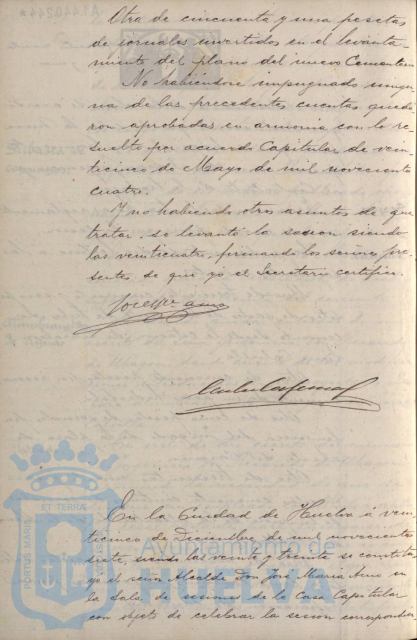 Otra de cincuenta y una pesetas
de jornales invertidos en el levanta-
miento del plano del nuevo Cementerio
No habiéndose impugnado ningu-
na de las precedentes cuentas queda-
ron aprobadas en armonia con lo re-
suelto por acuerdo Capitular de vein-
ticinco de Mayo de mil novecientos
cuatro.
Y no habiendo otros asuntos de que
tratar, se levantó la sesion siendo
las veinticuatro, firmando los señores pre-
sentes de que yo el Secretario certifico.
En la Ciudad de Huelva á vein-
ticinco de Diciembre de mil novecientos
siete, siendo las veinte y treinta se constituyó
el señor Alcalde don José Maria Amo en
la Sala de sesiones de la Casa Capitular
con objeto de celebrar la sesion correspondien
PORTUS MARIS
ET TERRÆ
CUSTODIA
Ayuntamiento de
HUELVA